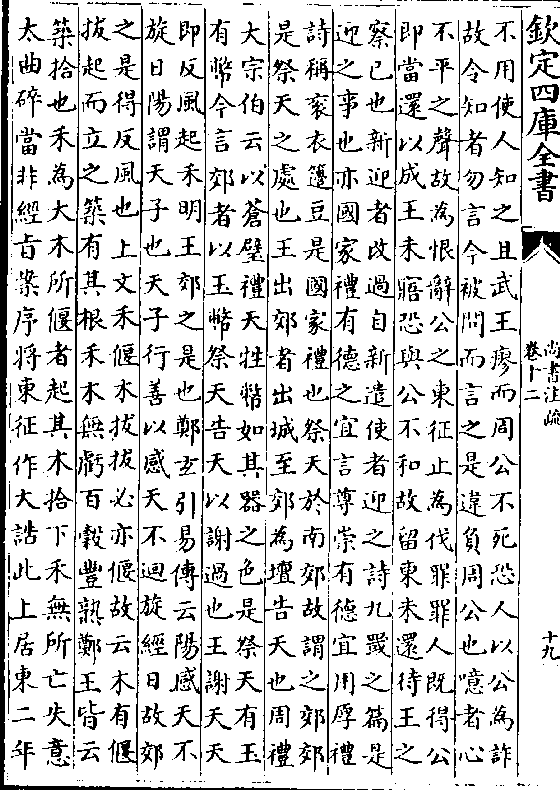 欽定四庫全書
尚書注疏
卷十二
十九
不用使人知之且武王瘳而周公不死恐人以公為詐
故令知者勿言今被問而言之是違負周公也噫者心
不平之聲故為恨辭公之東征止為伐罪罪人既得公
即當還以成王未寤恐與公不和故留東未還待王之
察已也新迎者改過自新遣使者迎之詩九罭之篇是
迎之事也亦國家禮有德之宜言尊崇有德宜用厚禮
詩稱衮衣籩豆是國家禮也祭天於南郊故謂之郊郊
是祭天之處也王出郊者出城至郊為壇告天也周禮
大宗伯云以蒼璧禮天牲幣如其器之色是祭天有玉
有幣今言郊者以玉幣祭天告天以謝過也王謝天天
即反風起禾明王郊之是也鄭玄引易傳云陽感天不
旋日陽謂天子也天子行善以感天不迴旋經日故郊
之是得反風也上文禾偃木拔拔必亦偃故云木有偃
拔起而立之築有其根禾木無虧百穀豐熟鄭王皆云
築拾也禾為大木所偃者起其木拾下禾無所亡失意
太曲碎當非經旨案序將東征作大誥此上居東二年